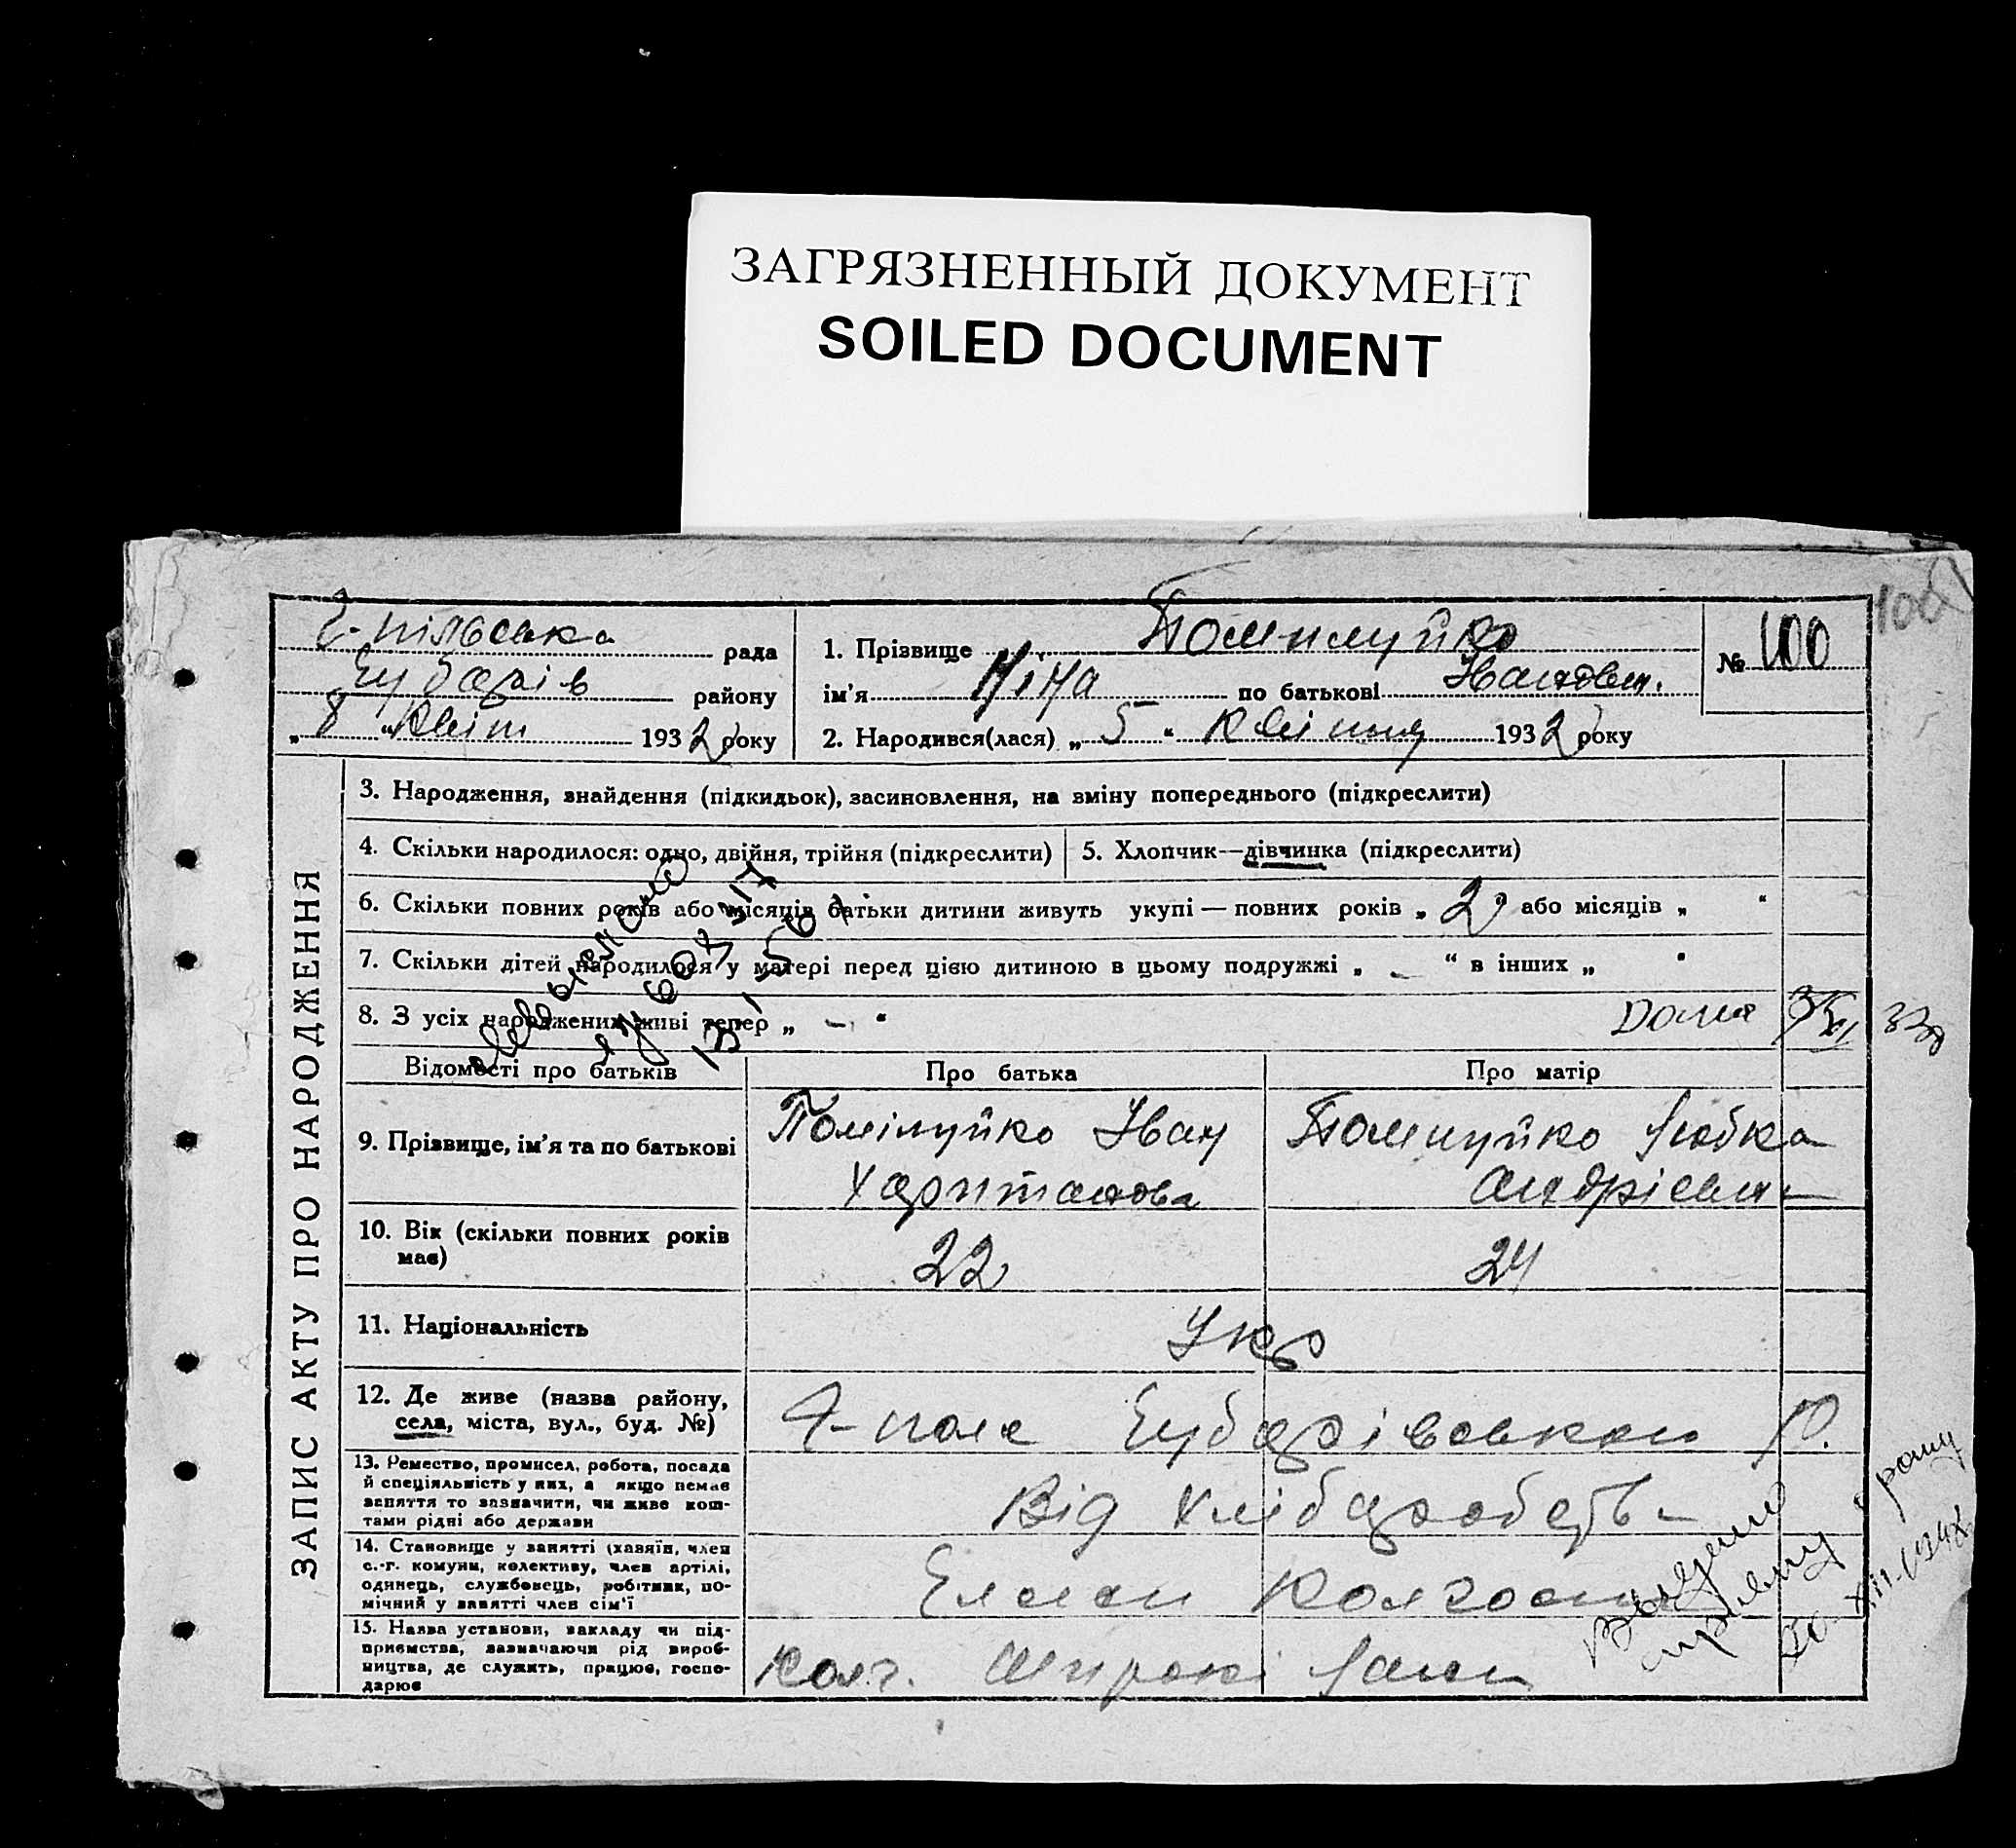 ЗАГРЯЗНЕННЫЙ ДОКУМЕНТ
SOILED DOCUMENT
пільська рада
району
„ 8 “ Квіт 1932 року
1. Прізвище Помилуйко
ім’я Ніна по батькові Івановн.
2. Народився(лася) „ 5 “ Квітня 1932 року
№ 100
ЗАПИС АКТУ ПРО НАРОДЖЕННЯ
3. Народження, знайдення (підкидьок), засиновлення, на зміну попереднього (підкреслити)
4. Скільки народилося: одно, двійня, трійня (підкреслити)
5. Хлопчик—дівчинка (підкреслити)
6. Скільки повних років або місяців батьки дитини живуть укупі — повних років „ 2 “ або місяців „ “
7. Скільки дітей народилося у матері перед цією дитиною в цьому подружжі „ — “ в інших „ “
8. З усіх народжених живі тепер „ — “ Дома
Відомості про батьків
Про батька
Про матір
9. Прізвище, ім’я та по батькові
Помілуйко Іван
Хаританова
Помилуйко Любка
Андрієвн
10. Вік (скільки повних років має)
22
24
11. Національність
Укр
12. Де живе (назва району,
села, міста, вул., буд. №)
поле р.
13. Ремество, промисел, робота, посада
й спеціяльність у них, а якщо немає
заняття то зазначити, чи живе кош-
тами рідні або держави
Від
14. Становище у занятті (хазяїн, член
с.-г. комуни, колективу, член артілі,
одинець, службовець, робітник, по-
мічний у занятті член сім’ї
15. Назва установи, закладу чи під-
приємства, зазначаючи рід вироб-
ництва, де служить, працює, госпо-
дарює
Колг. Широкі Лани